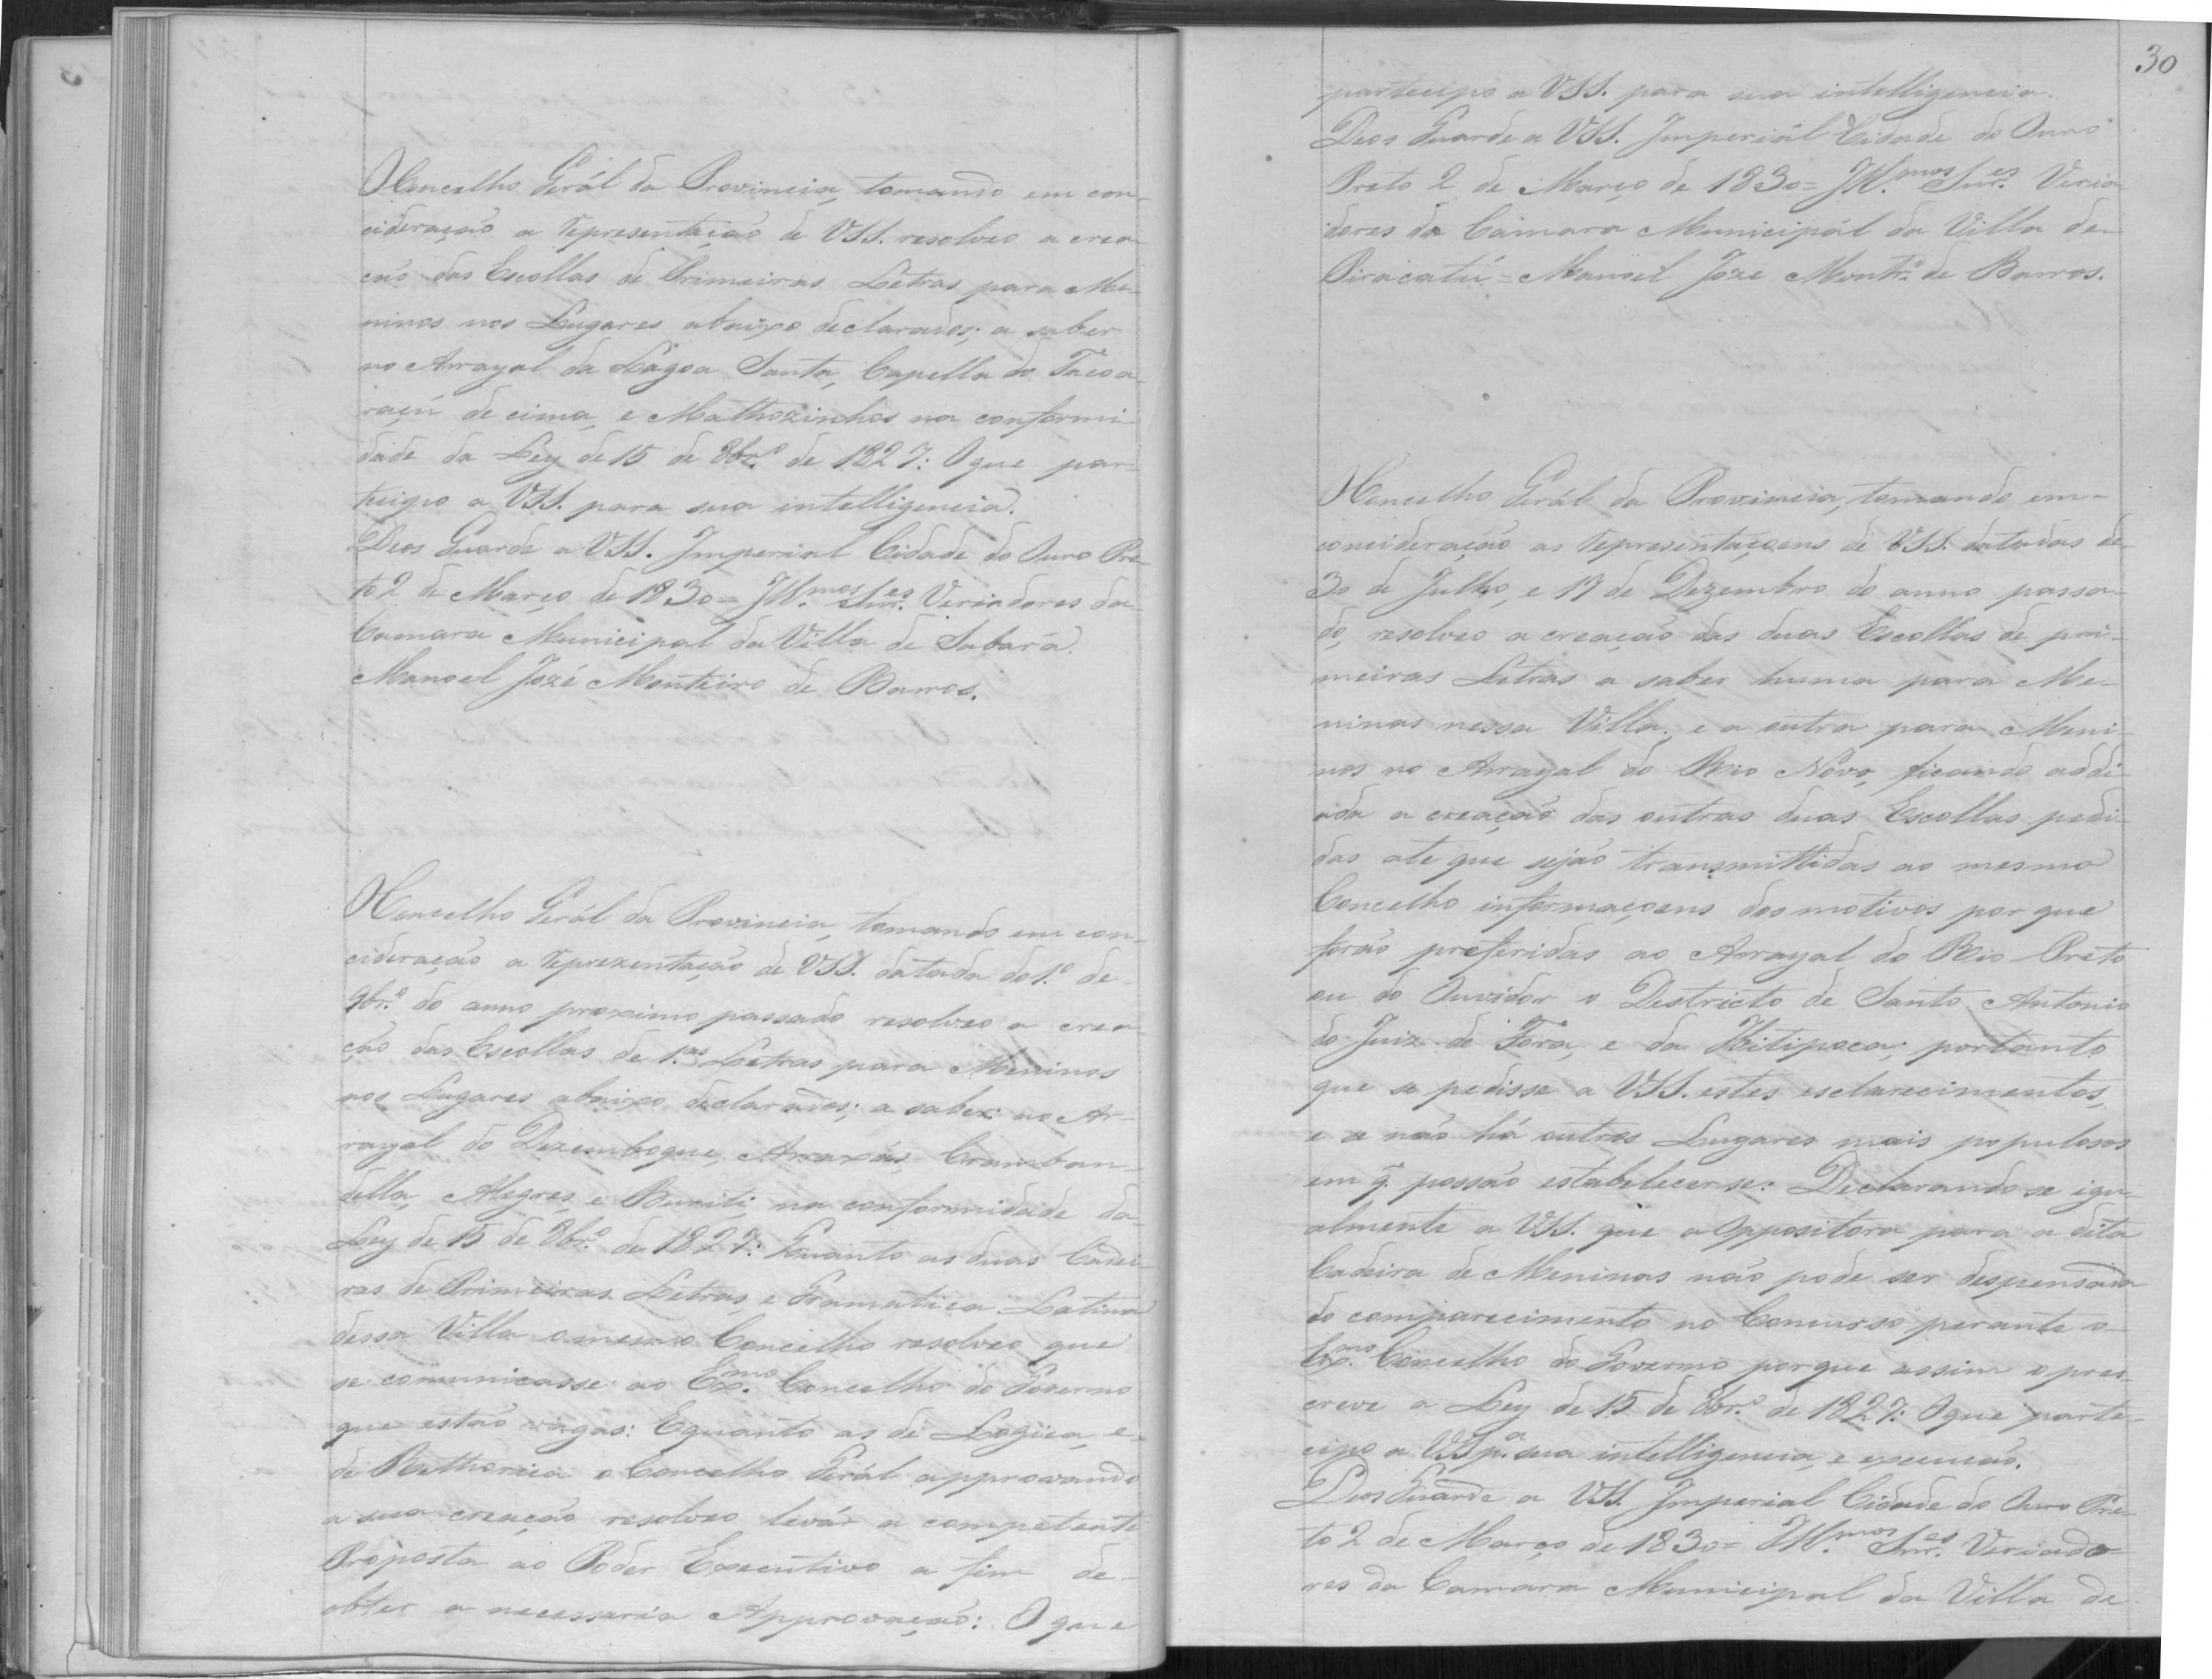 O Concelho Gerál da Provincia, tomando em con-
cideração a representação de VSS. resolveo a crea-
ção das Escollas de Primeiras Letras para Me-
ninos nos Lugares abaixo declarados; a saber
no Arrayal da Lagoa Santa, Capella do Tacoa-
raçú de cima, e Mathozinhos na conformi-
dade da Ley de 15 de 8br.º de 1827: O que par-
tecipo a VSS. para sua intelligencia.
Deos Guarde a VSS. Imperial Cidade do Ouro Pre-
to 2 de Março de 1830 = Ill.mos Snr.es Veriadores da
Camara Municipal da Villa de Sabará.
Manoel Jozé Monteiro de Barros.
O Concelho Gerál da Provincia, tomando em con-
cideração a reprezentação de VSS. datada do 1.º de
9br.º do anno proximo passado resolveo a crea-
ção das Escollas de 1.as Letras para Meninos
nos Lugares abaixo declarados; a saber: no Ar-
rayal do Dezemboque, Araxás, Cramban-
della, Alegres, e Buriti, na conformidade da
Ley de 15 de 8br.º de 1827: Quanto as duas Cadei-
ras de Primeiras Letras, e Gramatica Latina
dessa Villa o mesmo Concelho resolveo que
se comunicasse ao Ex.mo Concelho do Governo
que estão vagas: E quanto as de Logica, e
de Rethorica o Concelho Gerál approvando
a sua creação resolveo levár a competente
Proposta ao Poder Executivo a fim de
obter a necessaria Approvação: O que
30
partecipo a VSS. para sua intelligencia.
Deos Guarde a VSS. Imperiál Cidade do Ouro
Preto 2 de Março de 1830 = Ill.mos Snr.es Veria-
dores da Camara Municipál da Villa de
Piracatú = Manoel Joze Montr.º de Barros.
O Concelho Gerál da Provincia, tomando em
concideração as representaçoens de VSS. datadas de
30 de Julho, e 17 de Dezembro do anno passa-
do, resolveo a creação das duas Escollas de pri-
meiras Letras a saber huma para Me-
ninas nessa Villa, e a outra para Meni-
nos no Arrayal do Rio Novo, ficando addi-
ada a creação das outras duas Escollas pedi-
das ate que sejão transmittidas ao mesmo
Concelho informaçoens dos motivos por que
forão preferidas ao Arrayal do Rio Preto
ou do Ouvidor o Destricto de Santo Antonio
do Juiz de Fora, e da Ibitipoca; portanto
que se pedisse a VSS. estes esclarecimentos,
e se não há outros Lugares mais populosos
em q̃ possão estabelecer-se: Declarando se igu-
almente a VSS. que a Oppositora para a dita
Cadeira de Meninas não pode ser despensada
do comparecimento no Concurso perante o
Ex.mo Concelho do Governo porque assim o pres-
creve a Ley de 15 de 8br.º de 1827: O que parte-
cipo a VSS p.a sua intelligencia, e execussão.
Deos Guarde a VSS. Imperial Cidade do Ouro Pre-
to 2 de Março de 1830 = Ill.mos Snr.es Veriado-
res da Camara Municipal da Villa de